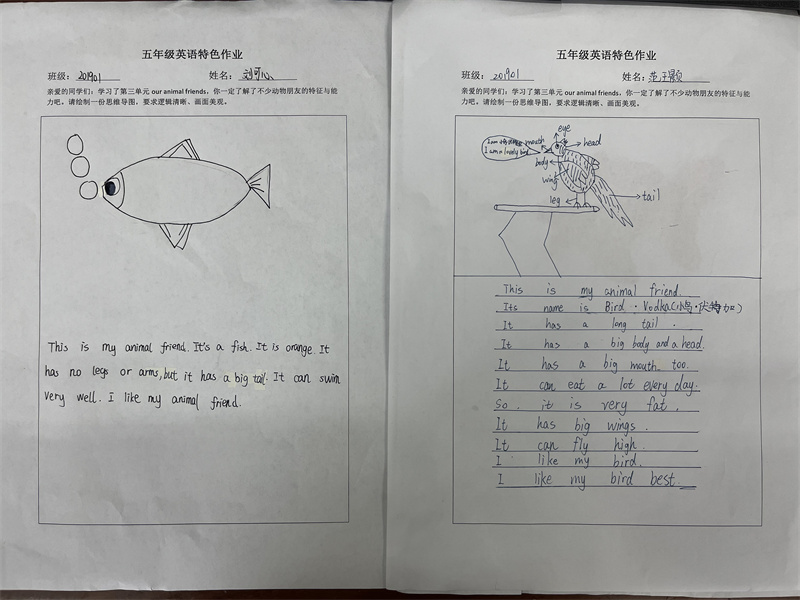 五年级英语特色作业
班级：201901 姓名：刘可心
亲爱的同学们：学习了第三单元 our animal friends，你一定了解了不少动物朋友的特征与能
力吧。请绘制一份思维导图，要求逻辑清晰、画面美观。
This is my animal friend. It's a fish. It is orange. It
has no legs or arms, but it has a big tail. It can swim
very well. I like my animal friend.
五年级英语特色作业
班级：201901 姓名：范
亲爱的同学们：学习了第三单元 our animal friends，你一定了解了不少动物朋友的特征与能
力吧。请绘制一份思维导图，要求逻辑清晰、画面美观。
eye
mouth
head
I am
I am a lovely bird
body
wing
leg
tail
This is my animal friend.
Its name is Bird · Vodka(小鸟·伏特加)
It has a long tail.
It has a big body and a head.
It has a big mouth too.
It can eat a lot every day.
So. it is very fat.
It has big wings.
It can fly high.
I like my bird.
I like my bird best.